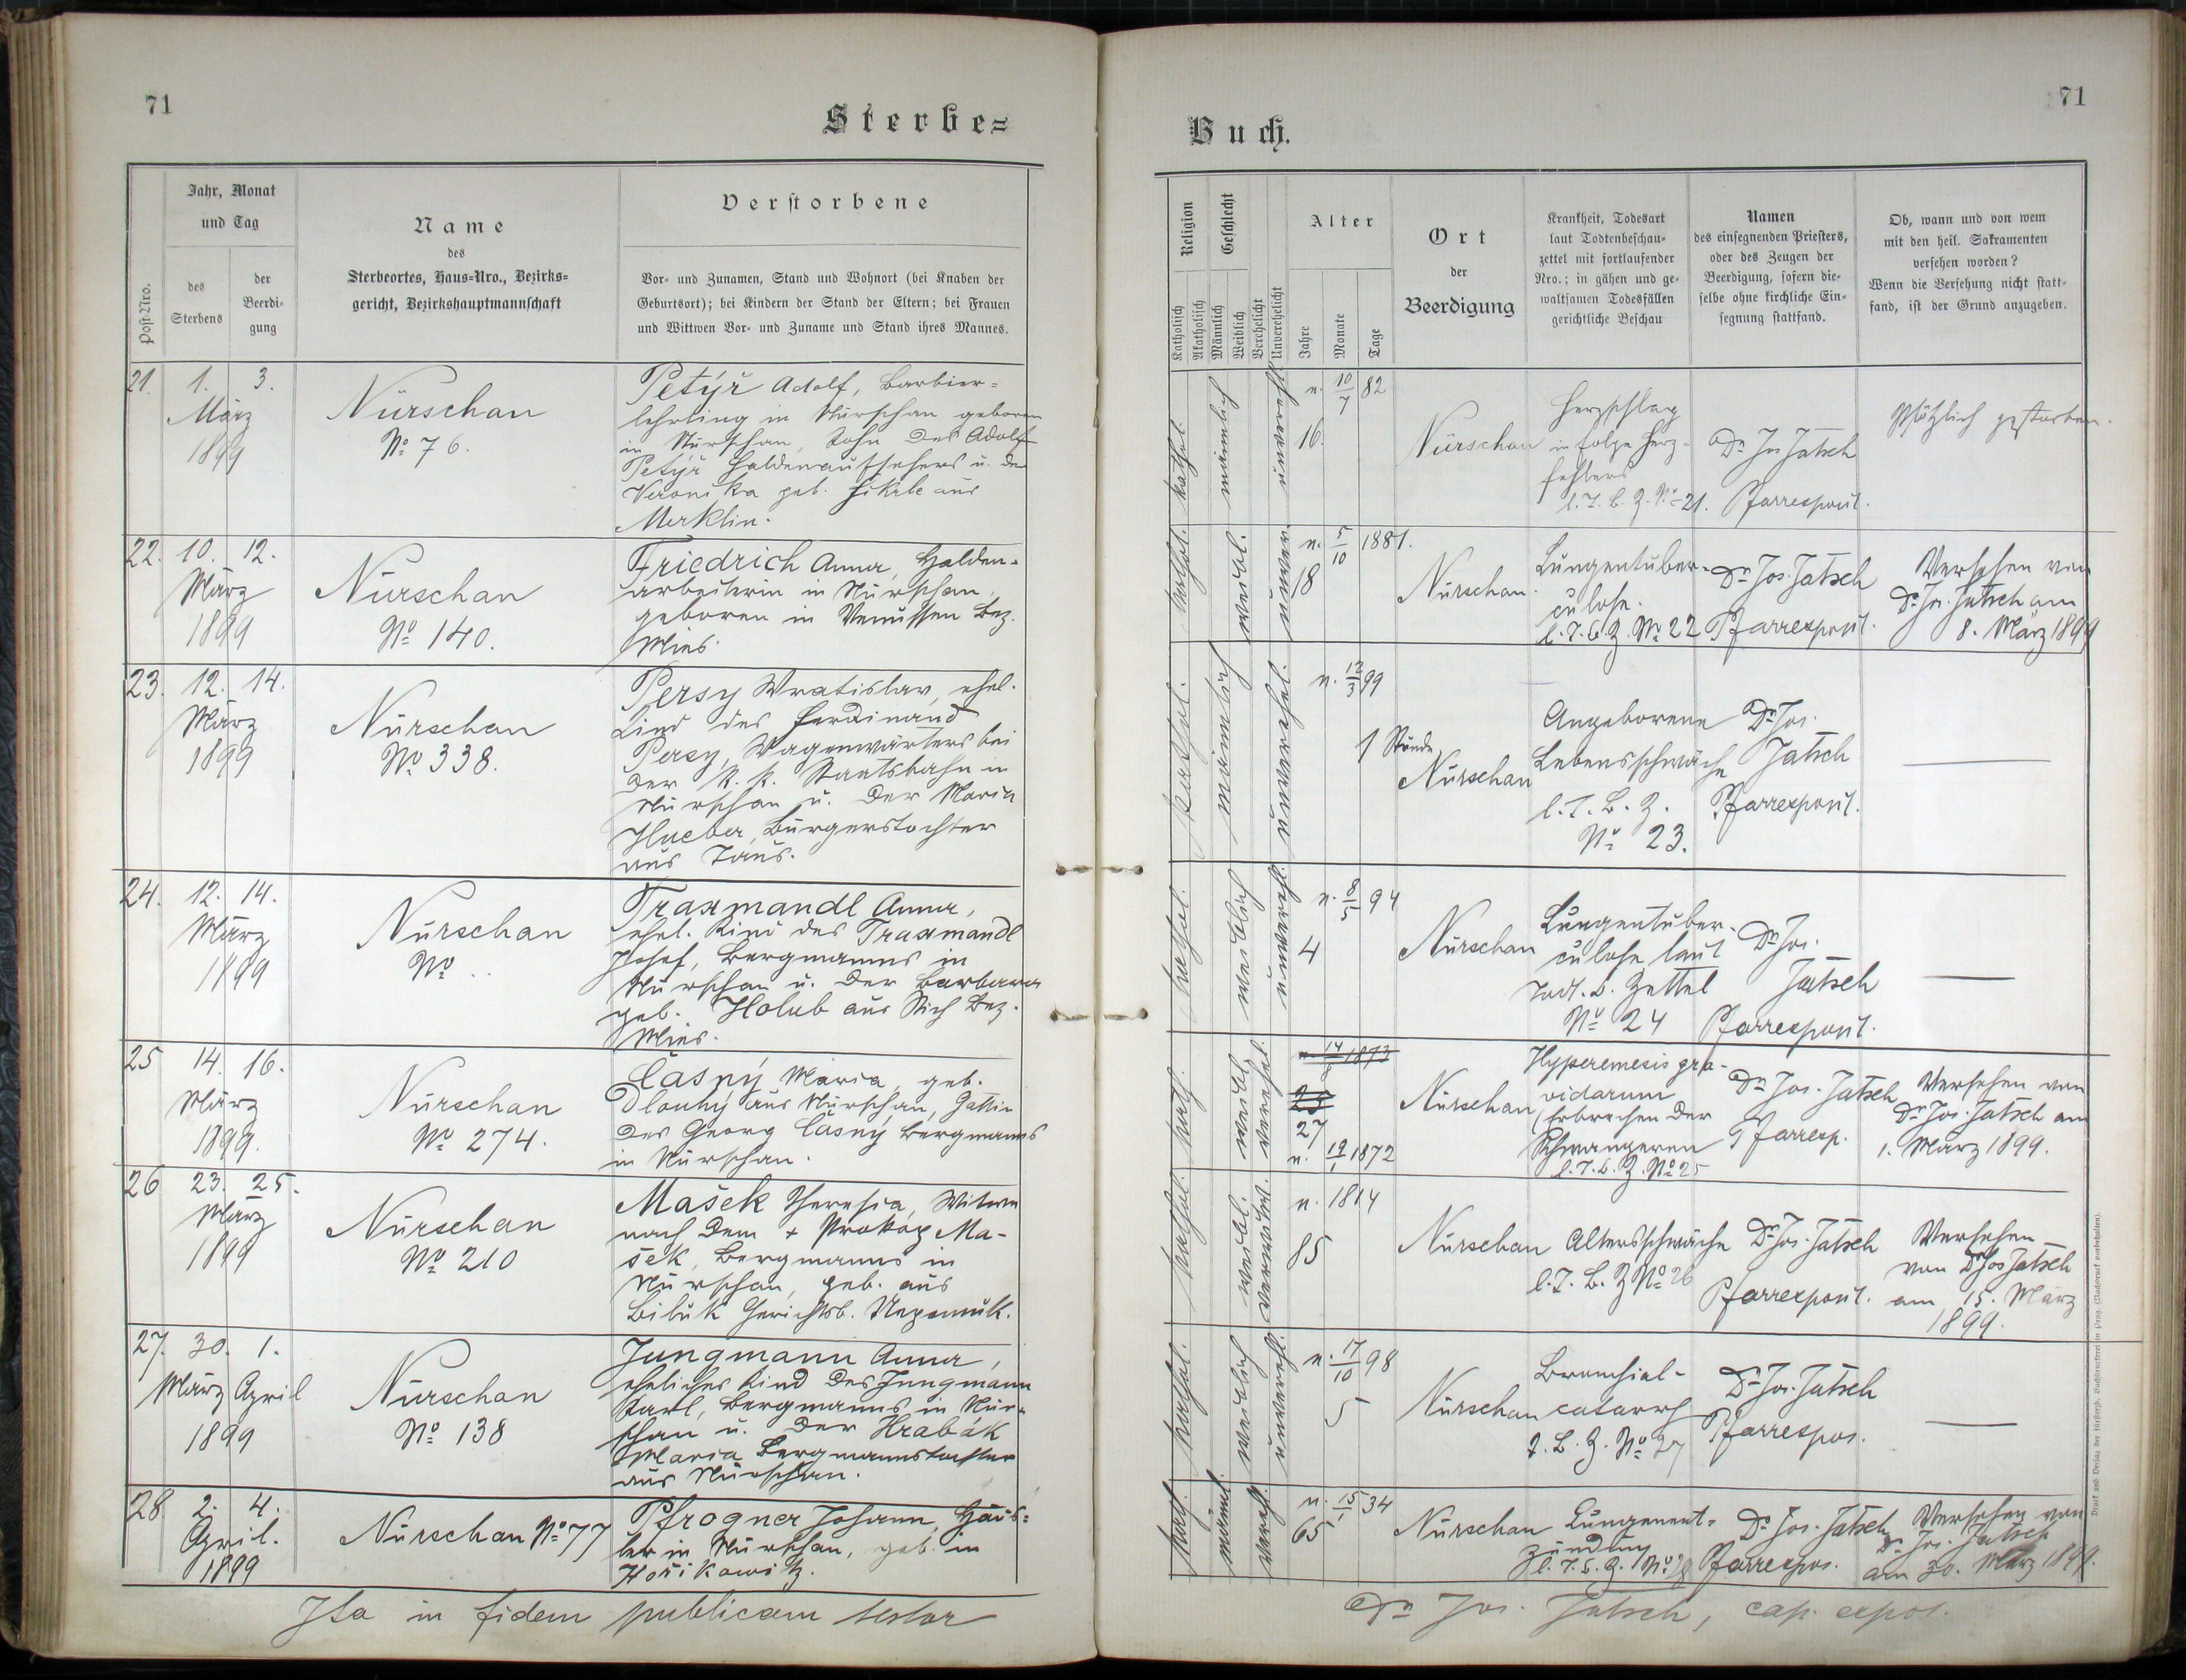 71
Sterbe=
Jahr, Monat
und Tag
Post-Nro.
des
Sterbens
der
Beerdi-
gung
Name
des
Sterbeortes, Haus-Nro., Bezirks-
gericht, Bezirkshauptmannschaft
Verstorbene
Vor- und Zunamen, Stand und Wohnort (bei Knaben der
Geburtsort); bei Kindern der Stand der Eltern; bei Frauen
und Wittwen Vor- und Zuname und Stand ihres Mannes.
21. 1. 3.
März
1899
Nürschan
No 76.
Petýř Adolf, Barbier-
lehrling in Nürschan geboren
in Nürschan, Sohn des Adolf
Petýř Haldenaufsehers u. der
Veronika geb. Fikrle aus
Merklin.
22. 10. 12.
März
1899
Nürschan
No 140.
Friedrich Anna, Halden-
arbeiterin in Nürschan,
geboren in Wenussen Bez.
Mies.
23. 12. 14.
März
1899
Nürschan
No 338.
Persy Wratislav, ehel.
Kind des Ferdinand
Persy, Wagenwärters bei
der k. k. Staatsbahn in
Nürschan u. der Maria
Hueber, Bürgerstochter
aus Taus.
24. 12. 14.
März
1899
Nürschan
No ..
Traxmandl Anna,
ehel. Kind des Traxmandl
Josef, Bergmanns in
Nürschan u. der Barbara
geb. Holub aus Stich Bez.
Mies.
25 14. 16.
März
1899.
Nürschan
No 274.
Časný Maria, geb.
Dlouhý aus Nürschan, Gattin
des Georg Časný Bergmanns
in Nürschan.
26 23. 25.
März
1899
Nürschan
No 210
Mašek Theresia, Witwe
nach dem + Prokop Ma-
šek, Bergmanns in
Nürschan, geb. aus
Biluk Gerichtsb. Nepomuk.
27. 30. 1.
März April
1899
Nürschan
No 138
Jungmann Anna,
eheliches Kind des Jungmann
Karl, Bergmanns in Nür-
schan u. der Hrabák
Maria Bergmannstochter
aus Nürschan.
28 2. 4.
April.
1899
Nürschan No 77
Pfrogner Johann, Häus-
ler in Nürschan, geb. in
Hořikowitz.
Ita in fidem publicam testor
71
Buch.
Religion
Katholisch
Akatholisch
Geschlecht
Männlich
Weiblich
Verehelicht
Unverehelicht
Alter
Jahre
Monate
Tage
Ort
der
Beerdigung
Krankheit, Todesart
laut Todtenbeschau-
zettel mit fortlaufender
Nro.; in gähen und ge-
waltsamen Todesfällen
gerichtliche Beschau
Namen
des einsegnenden Priesters,
oder des Zeugen der
Beerdigung, sofern die-
selbe ohne kirchliche Ein-
segnung stattfand.
Ob, wann und von wem
mit den heil. Sakramenten
versehen worden?
Wenn die Versehung nicht statt-
fand, ist der Grund anzugeben.
kathol.
männlich
unverehl.
n. 10/7 82
16.
Nürschan
Herzschlag
in folge Herz-
fehlers
l. T. B. Z. No 21.
Dr Jos Jatsch
Pfarrexposit.
Plötzlich gestorben.
kathol.
weibl.
unver.
n. 5/10 1881.
18
Nürschan.
Lungentuber-
culose.
l. T. B. Z. No 22
Dr Jos. Jatsch
Pfarrexposit.
Versehen von
Dr Jos. Jatsch am
8. März 1899
kathol.
männlich
unverehel.
n. 12/3 99
1 Stunde
Nürschan
Angeborene
Lebensschwäche
l. T. B. Z.
No 23.
Dr Jos.
Jatsch
Pfarrexposit.
kathol.
weiblich
unverehl.
n. 8/5 94
4
Nürschan
Lungentuber-
culose laut
Todt. B. Zettel
No 24
Dr Jos.
Jatsch
Pfarrexposit.
kath.
weibl.
verehel.
27
n. 19/1 1872
Nürschan
Hyperemesis gra-
vidarum
(Erbrechen der
Schwangeren
l. T. B. Z. No 25
Dr Jos. Jatsch
Pfarrexp.
Versehen von
Dr Jos. Jatsch am
1. März 1899.
kathol.
weibl.
verwitwt.
n. 1814
85
Nürschan
Altersschwäche
l. T. B. Z No 26
Dr Jos. Jatsch
Pfarrexposit.
Versehen
von Dr Jos Jatsch
am 15. März
1899.
kathol.
weiblich
unverehl.
n. 17/10 98
5
Nürschan
Bronchial-
catarrh
T. B. Z. No 27
Dr Jos. Jatsch
Pfarrexpos.
kath.
männl.
verehl.
n. 15/1 34
65
Nürschan
Lungenent-
zündung
l. T. B. Z. No 28
Dr Jos. Jatsch
Pfarrexpos.
Versehen von
Dr Jos. Jatsch
am 30. März 1899.
Dr Jos. Jatsch, cap. expos.